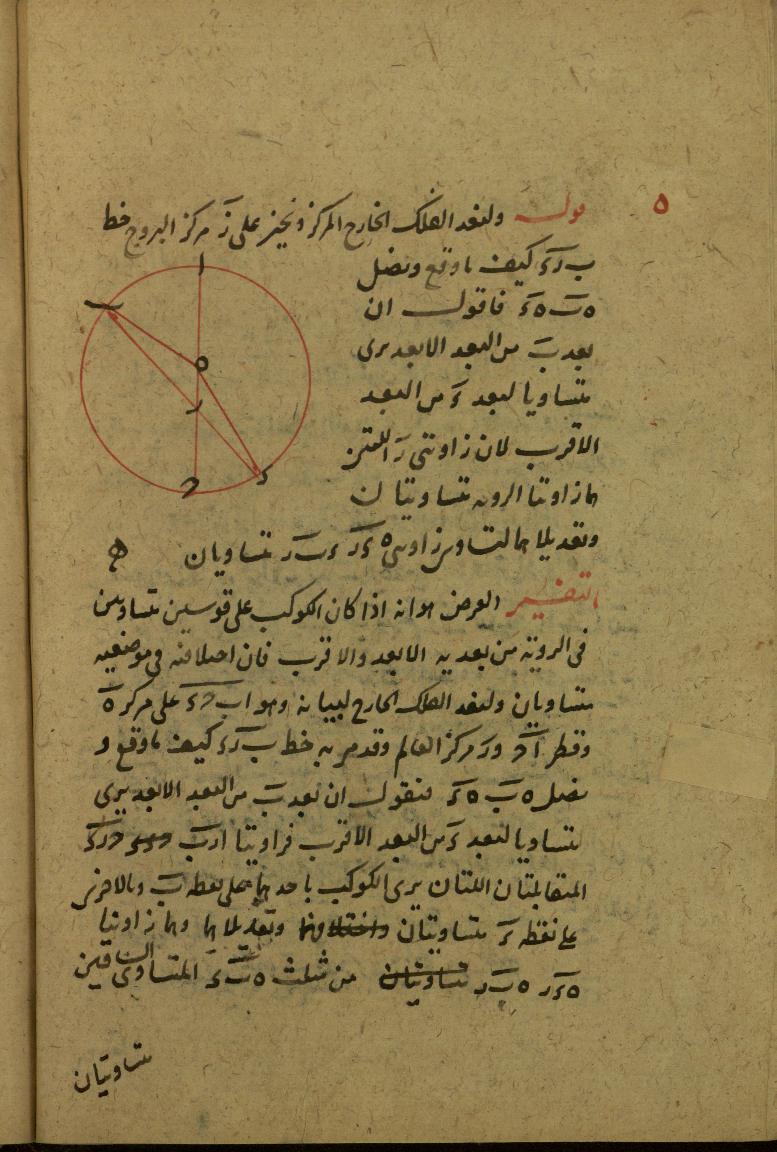 ٥
قوله ولنعد الفلك الخارج المركز ونجيز على ز مركز البروج خط
ب ر ء كيف ما وقع ونصل
ه ب ه ء فاقول ان
بعد ب من البعد الابعد يرى
متساويا لبعد ء من البعد
الاقرب لان زاويتي ر اللتين
هما زاويتا الرويه متساويتان
وتعديلاهما لتساوي زاويتي ه ء ر ه ب ر متساويان
التفسير الغرض هو انه اذا كان الكوكب على قوسين متساويين
في الروية من بعديه الابعد والاقرب فان اختلافه في موضعيه
متساويان ولنعد الفلك الخارج لبيانه وهو ا ب ح ء على مركز ه
وقطر ا ح و ر مركز العالم وقد مر به خط ب ر ء كيف ما وقع و
نصل ه ب ه ء فنقول ان بعد ب من البعد الابعد يرى
متساويا لبعد ء من البعد الاقرب فزاويتا ا ر ب ح ر ء
المتقابلتان اللتان يرى الكوكب باحدهما على نقطه ب وبالاخرى
على نقطه ء متساويتان واختلافهما وتعديلاهما وهما زاويتا
ه ء ر ه ب ر متساويتان من مثلث ه ب ء المتساوي الساقين
متساويتان
ا
ب
ه
ر
ء
ح